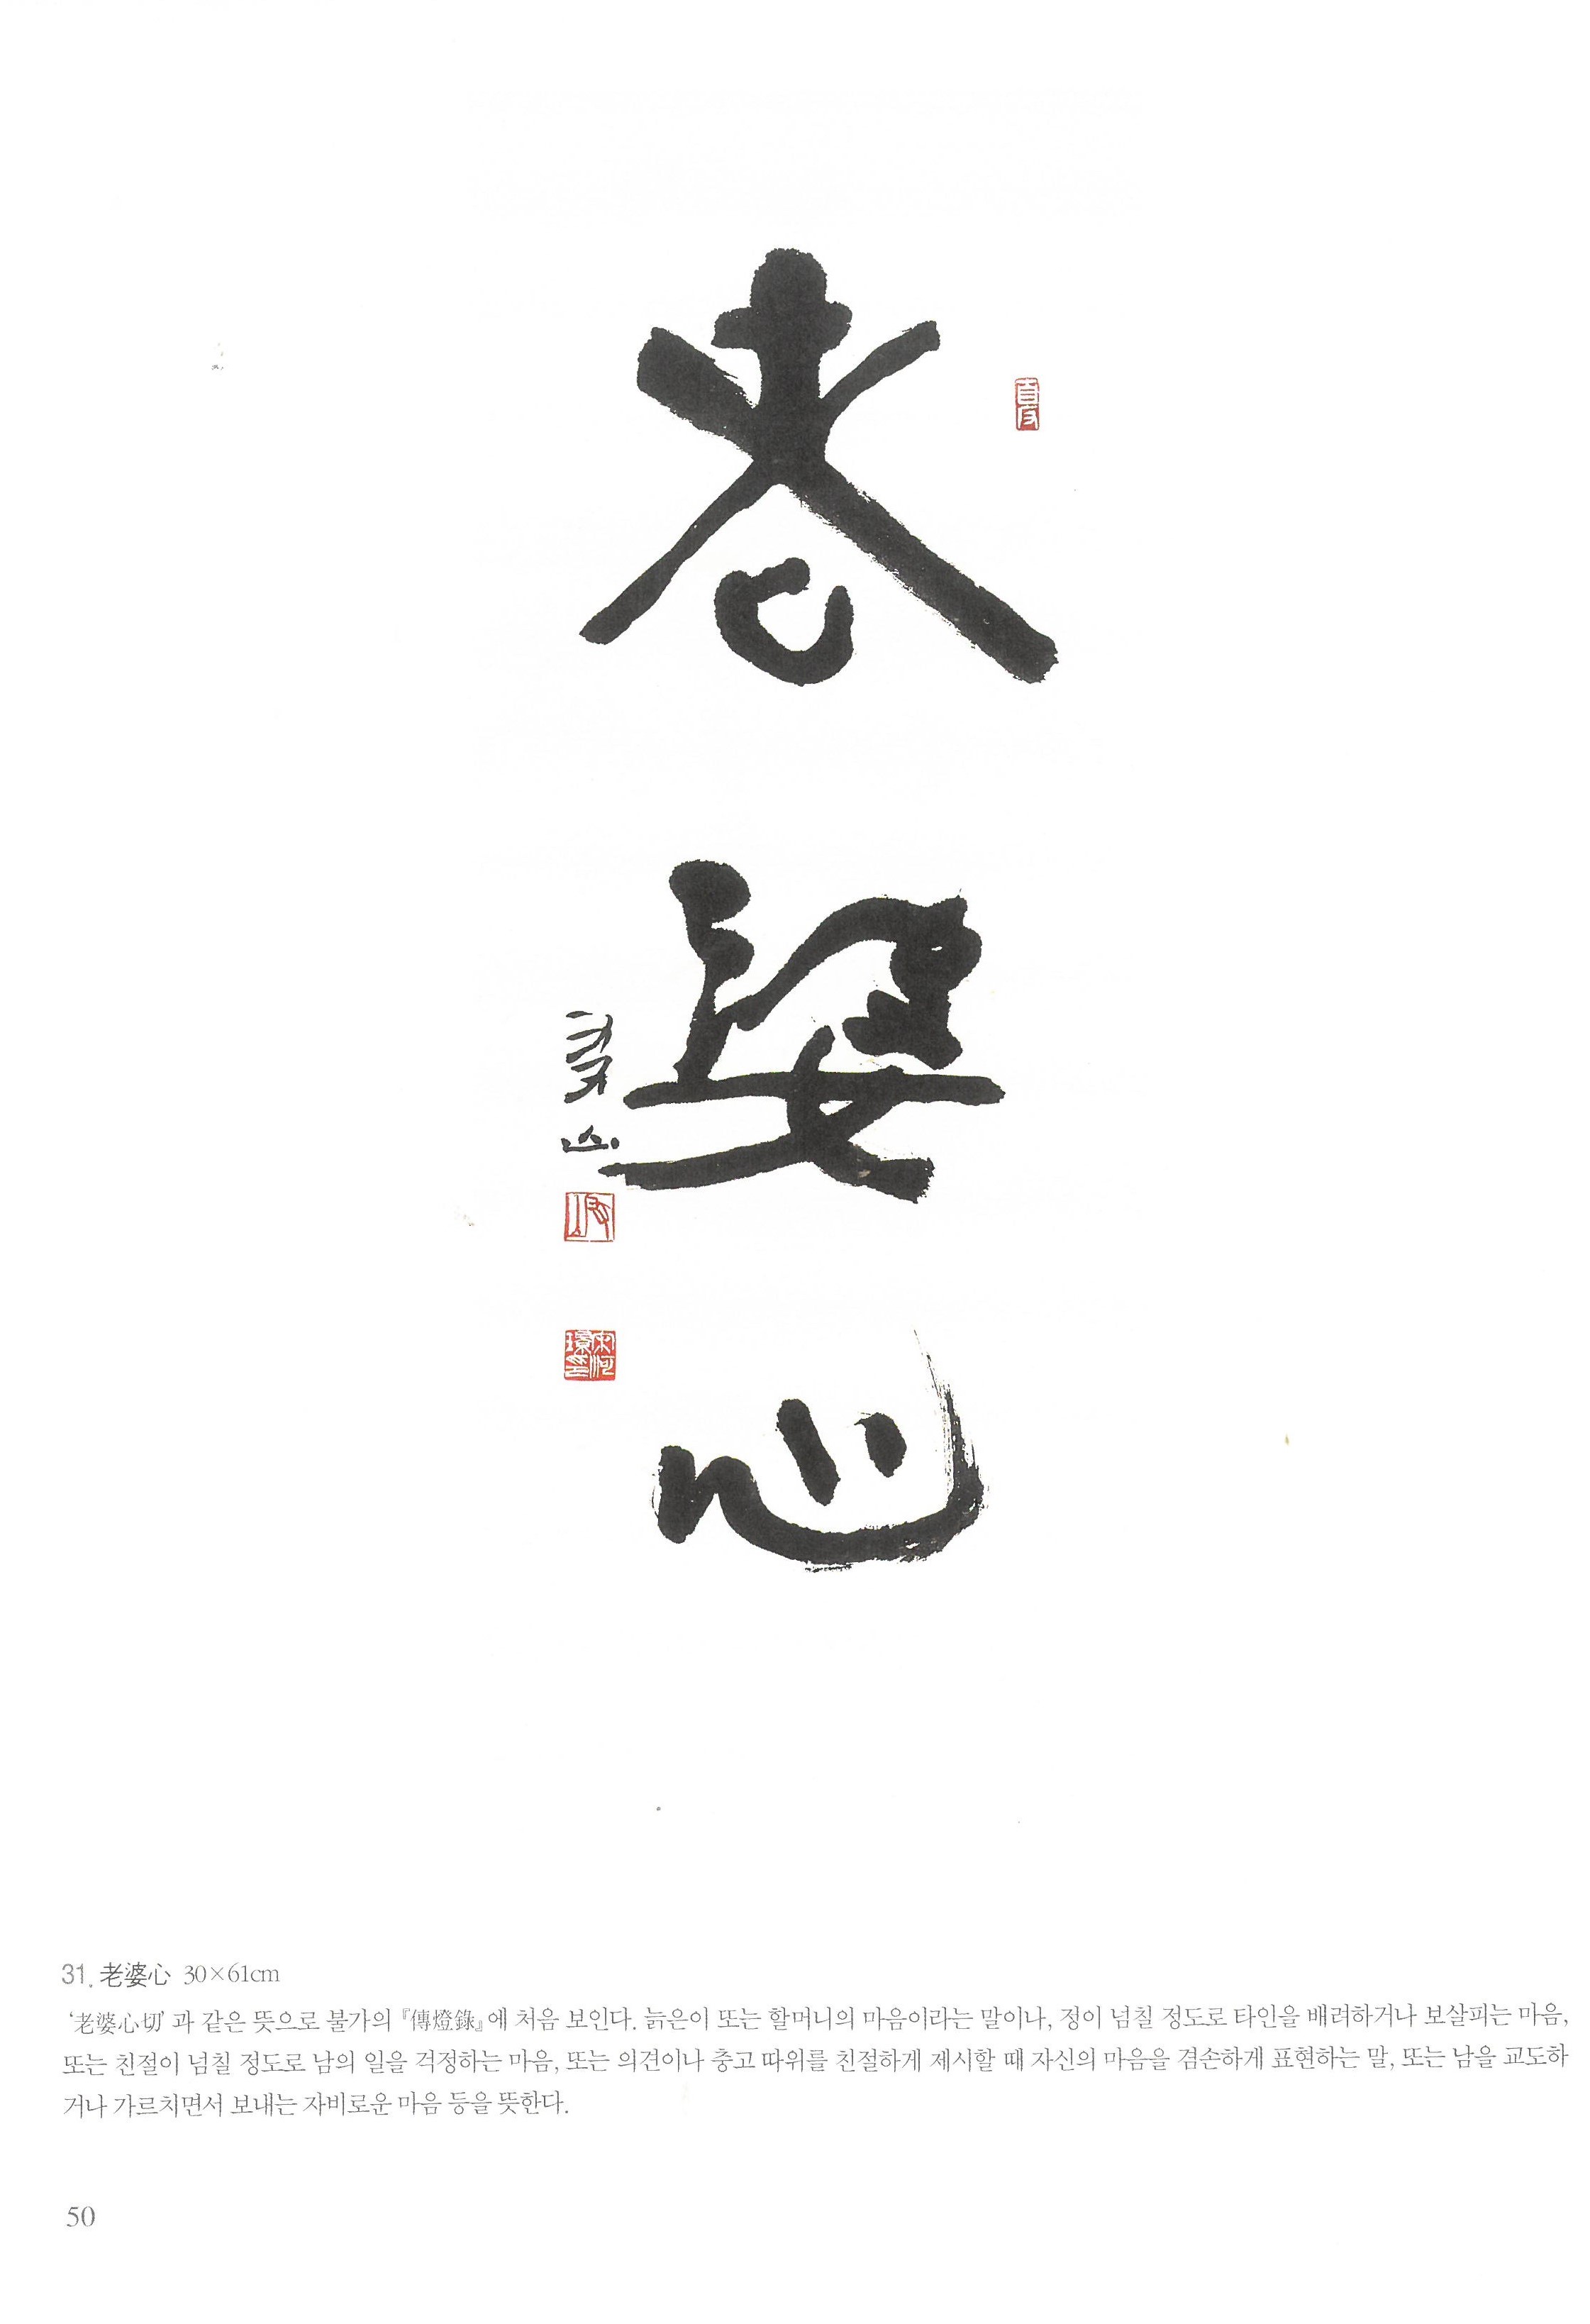 老
婆
心
31. 老婆心 30×61cm
‘老婆心切’과 같은 뜻으로 불가의 『傳燈錄』에 처음 보인다. 늙은이 또는 할머니의 마음이라는 말이나, 정이 넘칠 정도로 타인을 배려하거나 보살피는 마음,
또는 친절이 넘칠 정도로 남의 일을 걱정하는 마음, 또는 의견이나 충고 따위를 친절하게 제시할 때 자신의 마음을 겸손하게 표현하는 말, 또는 남을 교도하
거나 가르치면서 보내는 자비로운 마음 등을 뜻한다.
50